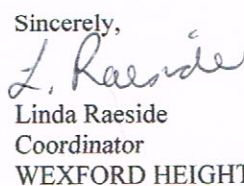 Sincerely,
L. Raeside
Linda Raeside
Coordinator
WEXFORD HEIGHT